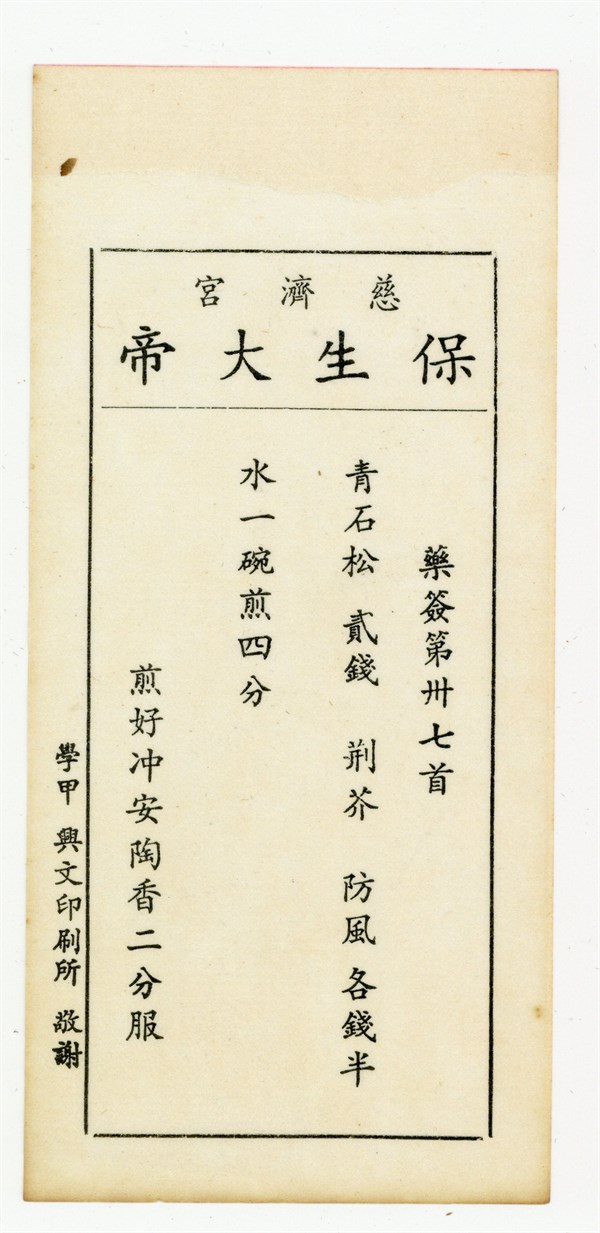 慈濟宮
保生大帝
藥簽第卅七首
青石松 貳錢 荆芥 防風各錢半
水一碗煎四分
煎好冲安陶香二分服
學甲 興文印刷所 敬謝